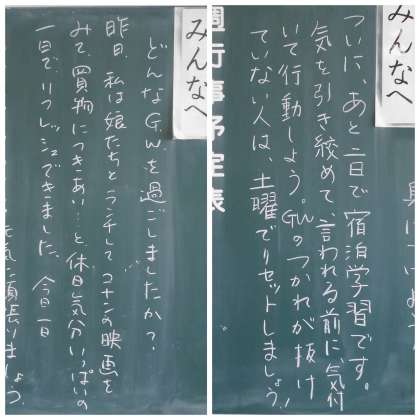 みんなへ
どんなGWを過ごしましたか?
昨日、私は娘たちとランチして コナンの映画を
みて、買物につきあい…と、休日気分いっぱいの
一日で、リフレッシュできました。今日一日
元気に頑張りましょう
みんなへ
週行事予定表
ついに、あと二日で宿泊学習です。
気を引き絞めて、言われる前に、気付
いて行動しよう。GWのつかれが抜け
ていない人は、土曜でリセットしましょう!